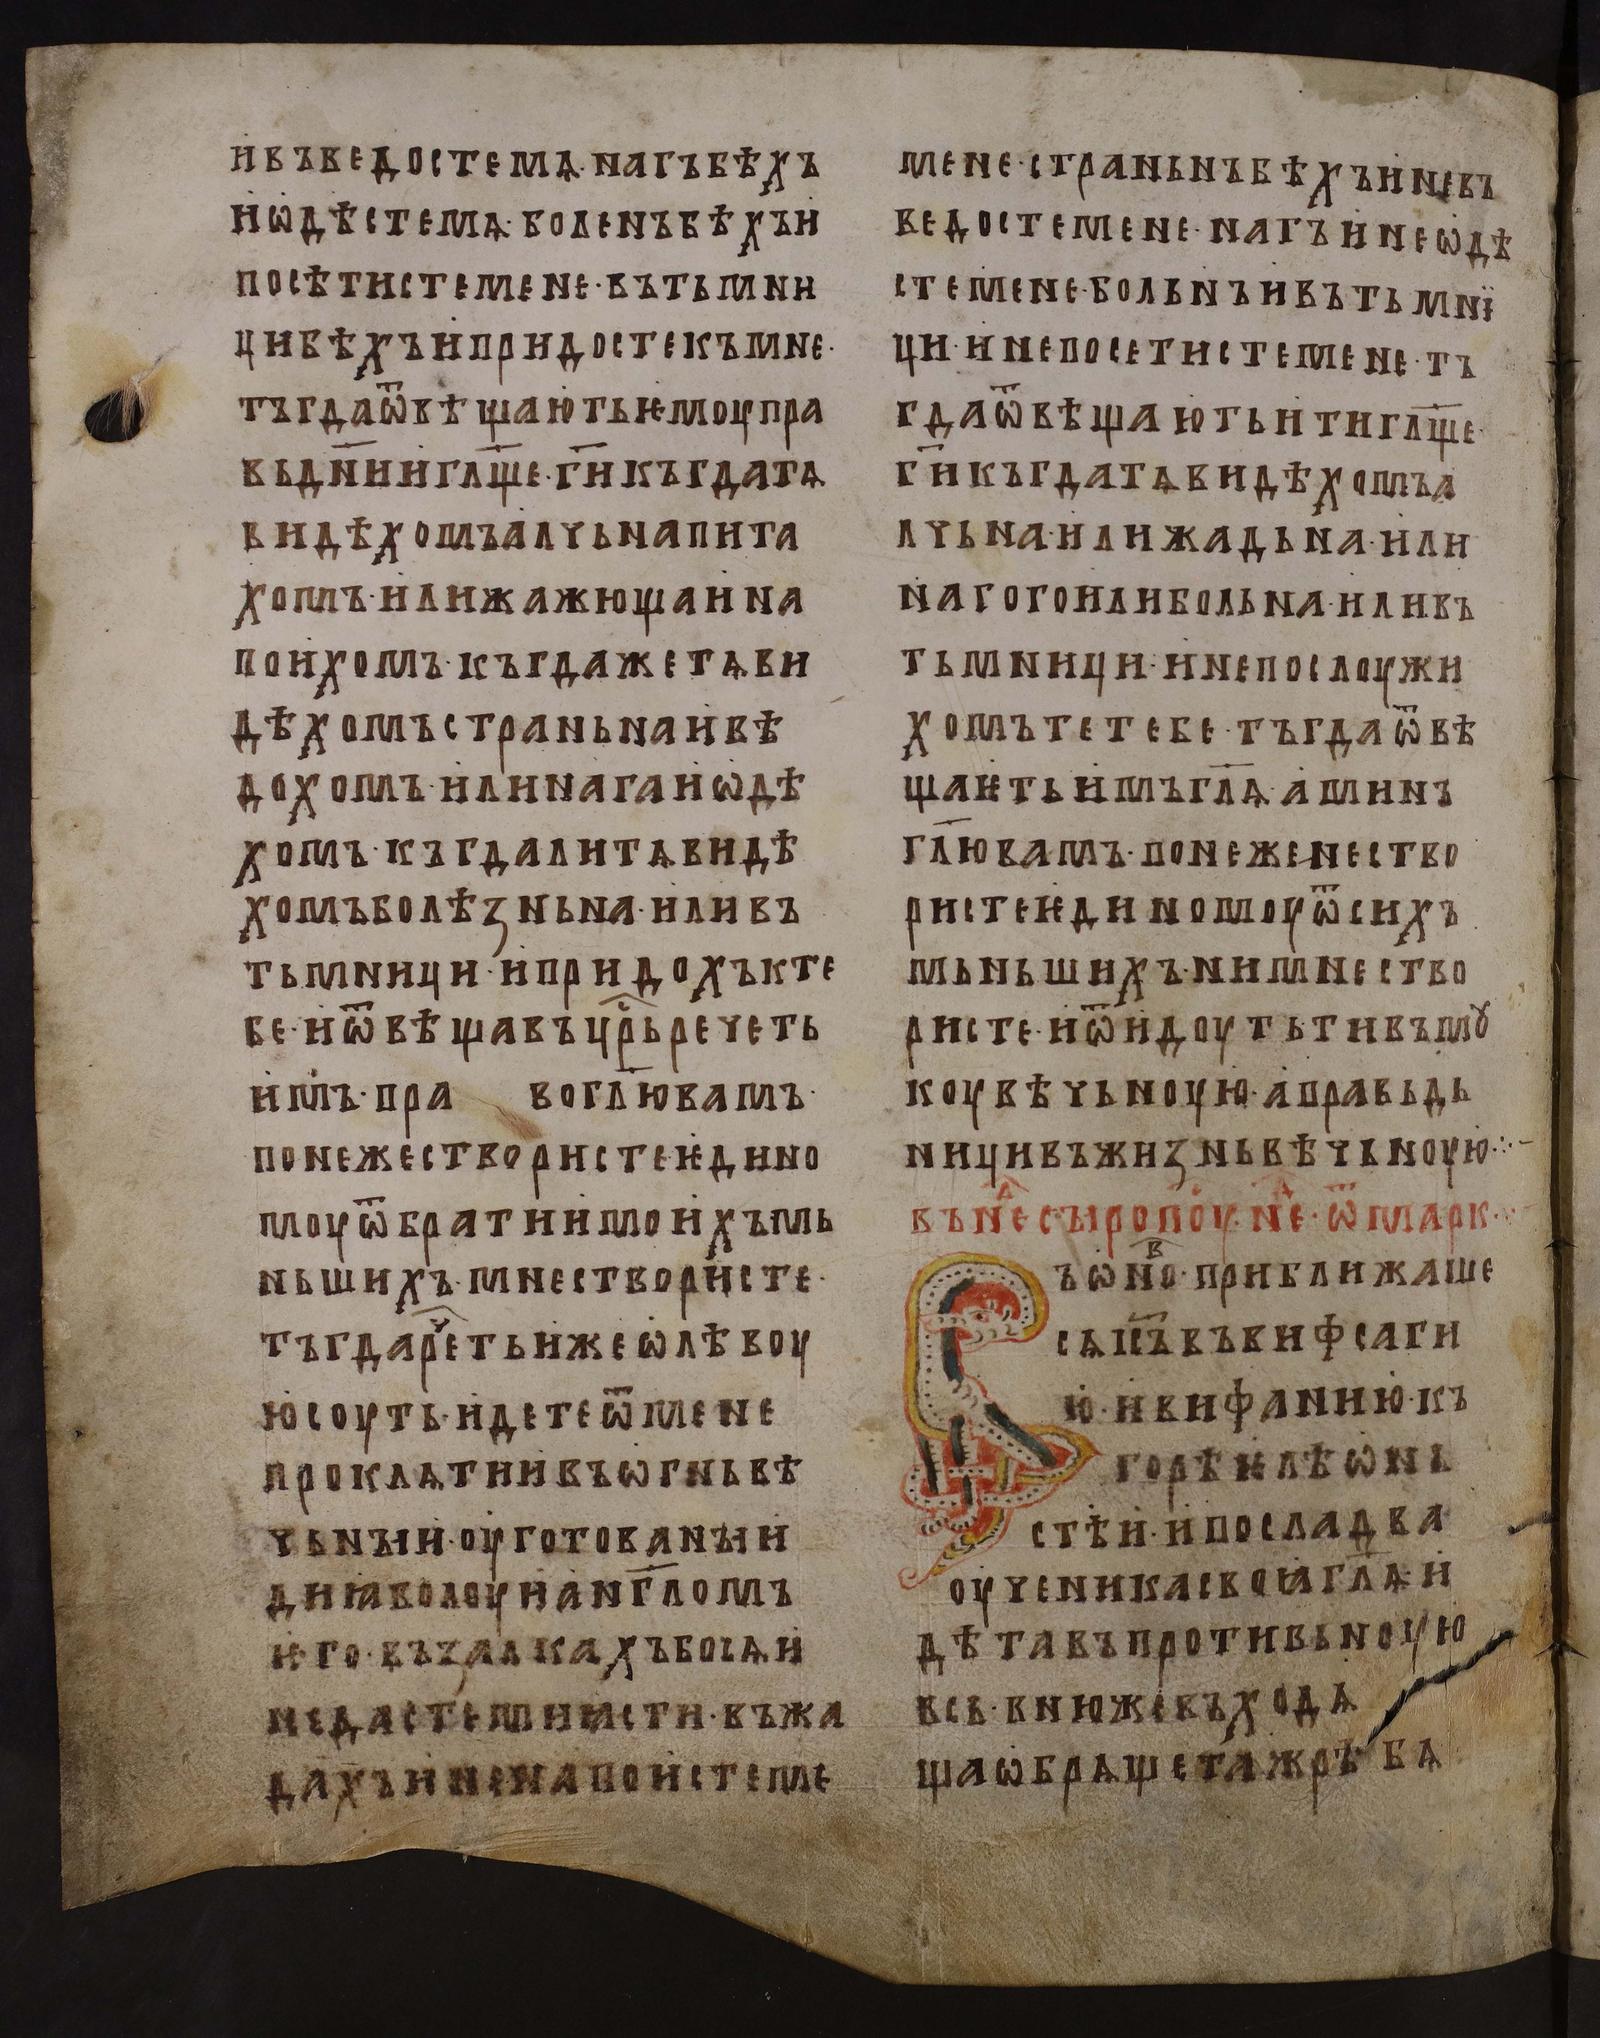 и въведосте мѧ· нагъ бѣхъ
и ѡдѣсте мѧ· боленъ бѣхъ и
посѣтисте мене· въ тьмни
ци бѣхъ и придосте къ мне·
тъгда ѿвѣщають ѥмоу пра
вьдн҃ии гл҃ще· г҃и къгда тѧ
видѣхомъ алчьна пита
хомъ· или жажюща и на
поихомъ· къгда же тѧ ви
дѣхомъ страньна и вѣ
дохомъ· или нага и ѡдѣ
хомъ· къгда ли тѧ видѣ
хомъ болѣзньна· или въ
тьмници· и придохъ к те
бе· и ѿвѣщавъ цр҃ь речеть
имъ· пра во гл҃ю вамъ·
понеже створисте ѥдино
моу ѿ братии моихъ мь
ньшихъ· мне створисте·
тъгда реⷱ҇еть иже ѡ лѣвоу
ю соуть· идете ѿ мене
проклѧтии въ ѡгнь вѣ
чьнъıи· оуготованъıи
диıаволоу и анг҃ломъ
ѥго· възалкахъ бо сѧ и
не дасте ми ıасти· въжа
дахъ и не напоисте ме
мене· страньнъ бѣхъ и не въ
ведосте мене· нагъ и не ѡдѣ
сте мене· больнъ и въ тьмнї
ци· и не посетисте мене· тъ
гда ѿвѣщають и ти гл҃ще·
г҃и къгда тѧ видѣхомъ а
лчьна· или жадьна· или
нагого или больна· или въ
тьмници· и не послоужи
хомъ те тебе· тъгда ѿвѣ
щаѥть имъ гл҃ѧ· аминъ
гл҃ю вамъ· понеже не ство
ристе ѥдиномоу ѿ сихъ
мьньшихъ· ни мне ство
ристе· и ѿидоуть ти въ мꙋ
коу вѣчьноую· а правьдь
ници въ жизнь вѣчьноую·:·
въ неⷣ съıропоуⷭ· неⷣ· ѿ марк·
въ ѡноⷡ· приближаше
сѧ и҃съ въ вифсаги
ю· и вифанию· къ
горѣ ѥлѣѡнь
стѣи· и посла два
оученика своıа гл҃ѧ· и
дѣта въ противьноую
всь· в нюже въходѧ
ща ѡбрѧщета жрѣбѧ